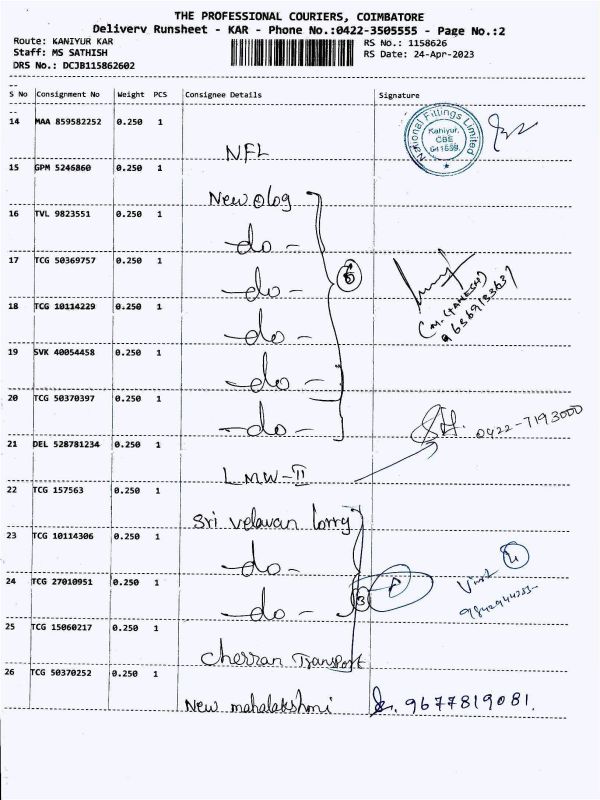 THE PROFESSIONAL COURIERS, COIMBATORE
Delivery Runsheet - KAR - Phone No.:0422-3505555 - Page No.:2
Route: KANIYUR KAR
RS No.: 1158626
Staff: MS SATHISH
RS Date: 24-Apr-2023
DRS No.: DCJB115862602
S No Consignment No Weight PCS Consignee Details Signature
14 MAA 859582252 0.250 1
NFL
National Fittings Limited
Kaniyur,
CBE
641659
15 GPM 5246860 0.250 1
New Olog
16 TVL 9823551 0.250 1
-do-
17 TCG 50369757 0.250 1
-do-
6
18 TCG 10114229 0.250 1
-do-
19 SVK 40054458 0.250 1
-do-
20 TCG 50370397 0.250 1
-do-
0422-7193000
21 DEL 528781234 0.250 1
LMW-II
22 TCG 157563 0.250 1
Sri velavan lorry
23 TCG 10114306 0.250 1
-do-
24 TCG 27010951 0.250 1
-do-
3
25 TCG 15060217 0.250 1
Cherran Transport
26 TCG 50370252 0.250 1
New mahalakshmi
9677819081.